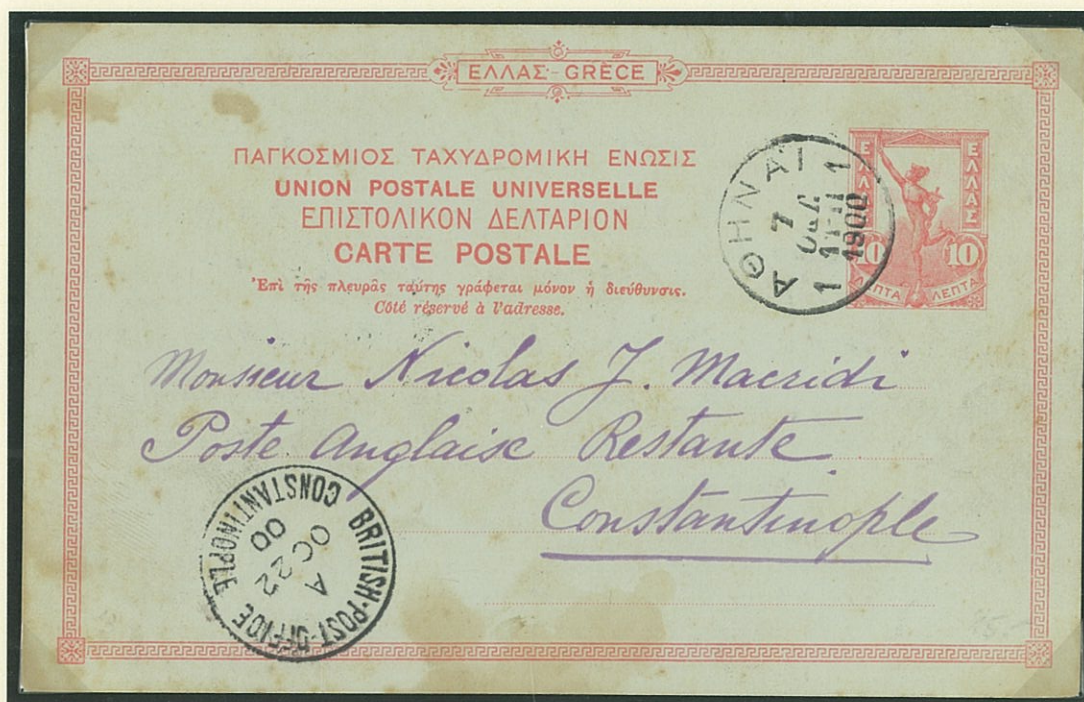 ΕΛΛΑΣ-GRÈCE
ΠΑΓΚΟΣΜΙΟΣ ΤΑΧΥΔΡΟΜΙΚΗ ΕΝΩΣΙΣ
UNION POSTALE UNIVERSELLE
ΕΠΙΣΤΟΛΙΚΟΝ ΔΕΛΤΑΡΙΟΝ
CARTE POSTALE
Ἐπὶ τῆς πλευρᾶς ταύτης γράφεται μόνον ἡ διεύθυνσις.
Côté réservé à l'adresse.
ΑΘΗΝΑΙ 1
7
ΟΚΤ
1900
1
ΕΛΛΑΣ
ΕΛΛΑΣ
10 10
ΛΕΠΤΑ ΛΕΠΤΑ
Monsieur Nicolas J. Macridi
Poste Anglaise Restante
Constantinople
BRITISH·POST·OFFICE CONSTANTINOPLE
A
OC 22
00